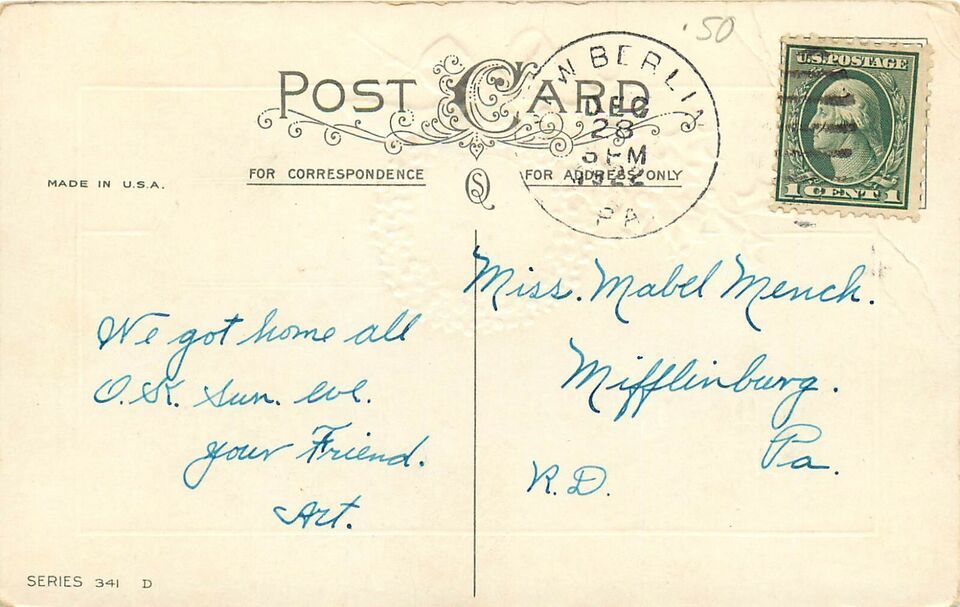 .50
POST CARD
NEW BERLIN
DEC
28
PM
1922
PA
U.S. POSTAGE
1 CENT 1
MADE IN U.S.A.
FOR CORRESPONDENCE
FOR ADDRESS ONLY
SQ
Miss. Mabel Mench.
Mifflinburg.
Pa.
R.D.
We got home all
O.K. Sun. eve.
your Friend.
Art.
SERIES 341 D